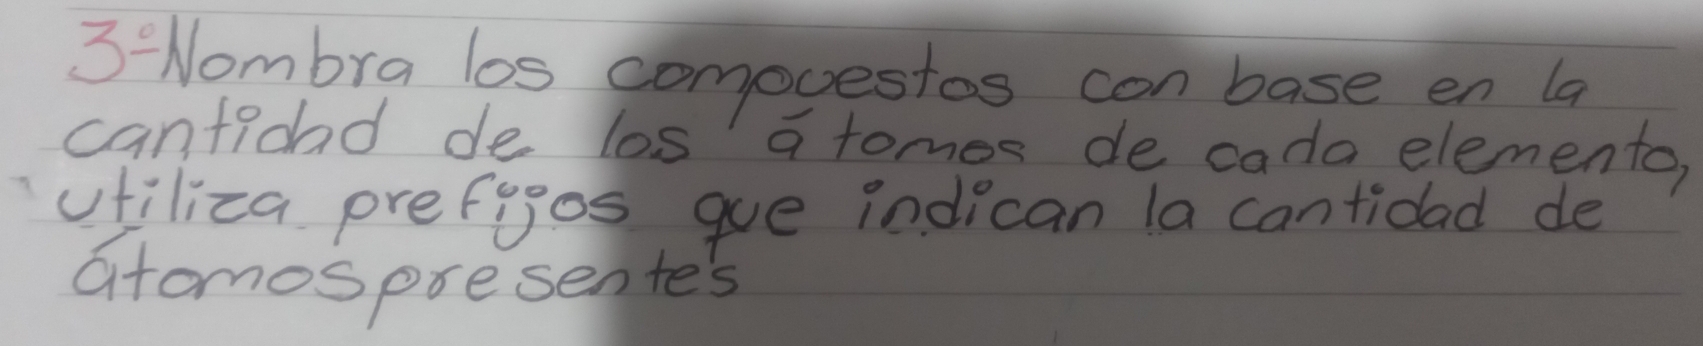 3º Nombra los compuestos con base en la
cantidad de los átomos de cada elemento,
utiliza prefijos que indican la cantidad de
átomos presentes